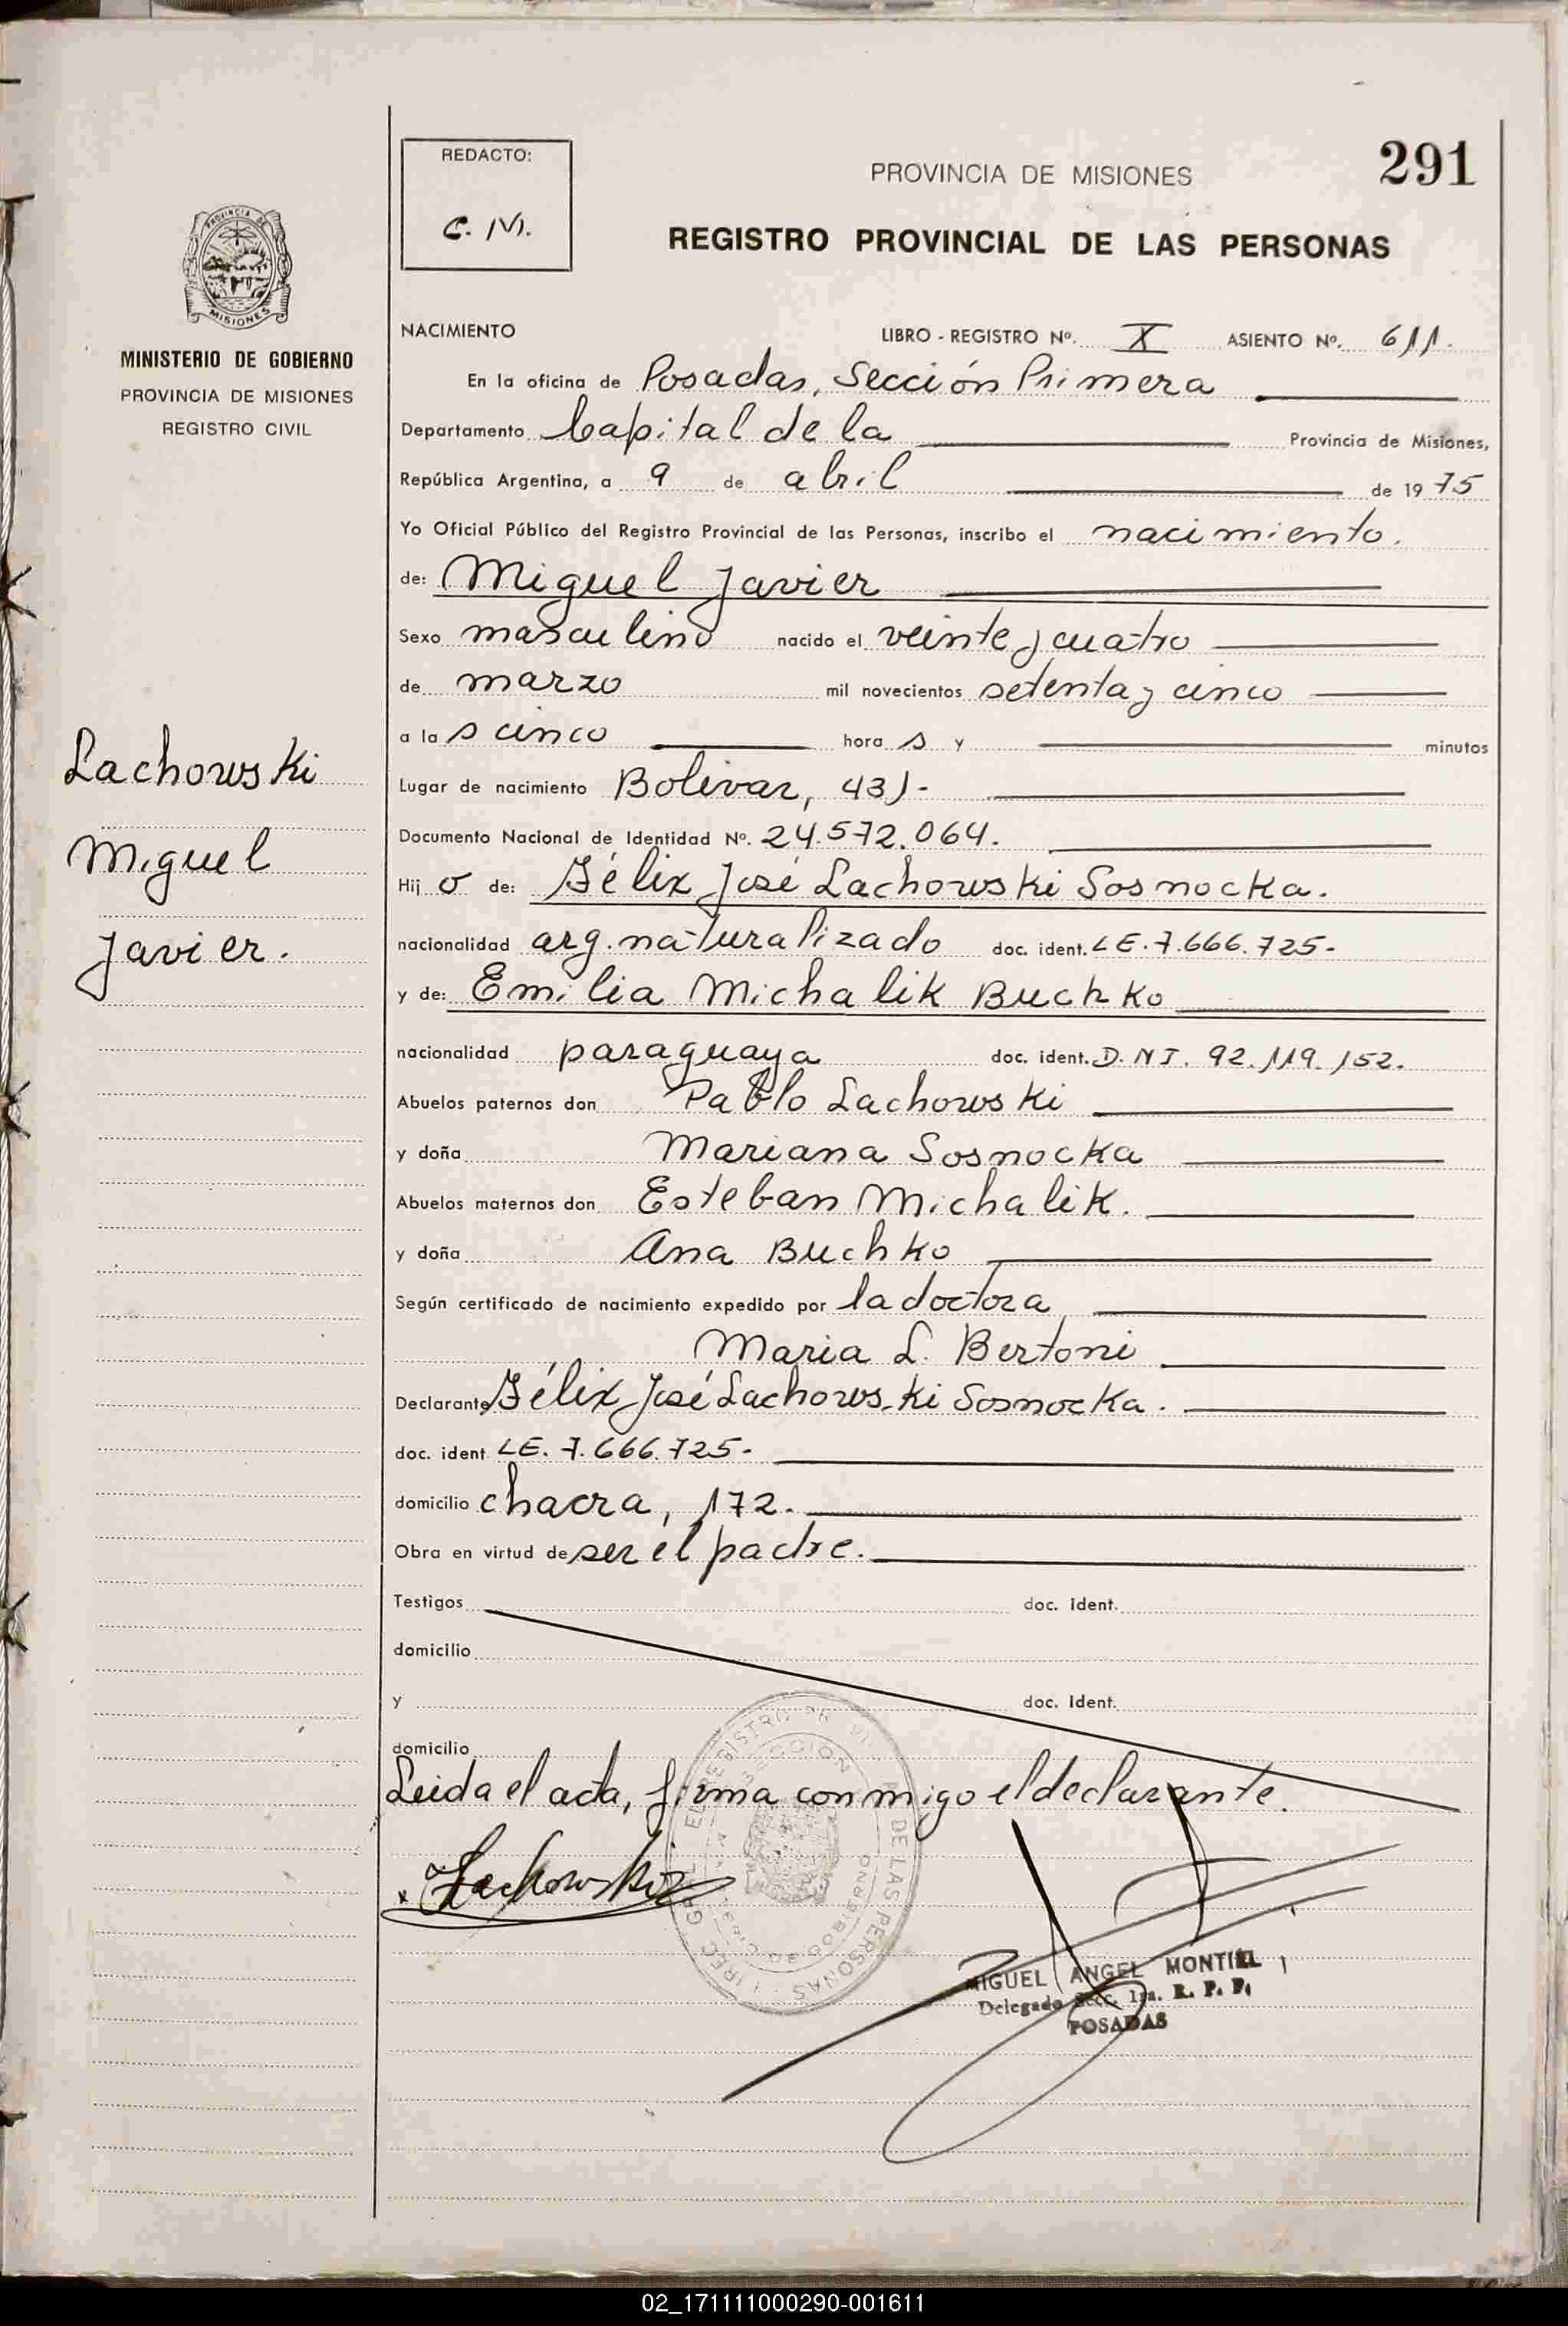 291
REDACTO:
C. M.
PROVINCIA DE MISIONES
REGISTRO PROVINCIAL DE LAS PERSONAS
PROVINCIA DE
MISIONES
MINISTERIO DE GOBIERNO
PROVINCIA DE MISIONES
REGISTRO CIVIL
Lachowski
Miguel
Javier.
NACIMIENTO LIBRO - REGISTRO Nº. X ASIENTO Nº. 611.
En la oficina de Posadas, Sección Primera
Departamento Capital de la Provincia de Misiones,
República Argentina, a 9 de abril de 1975
Yo Oficial Público del Registro Provincial de las Personas, inscribo el nacimiento.
de: Miguel Javier
Sexo masculino nacido el veinte y cuatro
de marzo mil novecientos setenta y cinco
a las cinco horas y minutos
Lugar de nacimiento Bolivar, 431-
Documento Nacional de Identidad Nº. 24.572.064.
Hijo de: Félix José Lachowski Sosnocka.
nacionalidad arg. naturalizado doc. ident. LE. 7.666.725-
y de: Emilia Michalik Buchko
nacionalidad paraguaya doc. ident. D.N I. 92.119.152.
Abuelos paternos don Pablo Lachowski
y doña Mariana Sosnocka
Abuelos maternos don Esteban Michalik.
y doña Ana Buchko
Según certificado de nacimiento expedido por la doctora
Maria L. Bertoni
Declarante Félix José Lachowski Sosnocka.
doc. ident LE. 7.666.725-
domicilio chacra, 172.
Obra en virtud de ser el padre.
Testigos doc. ident.
domicilio
y doc. ident.
domicilio
Leida el acta, firma conmigo el declarante.
x Lachowski
MIGUEL ANGEL MONTIEL
Delegado Secc. 1ra. R. P. P.
POSADAS
02_171111000290-001611